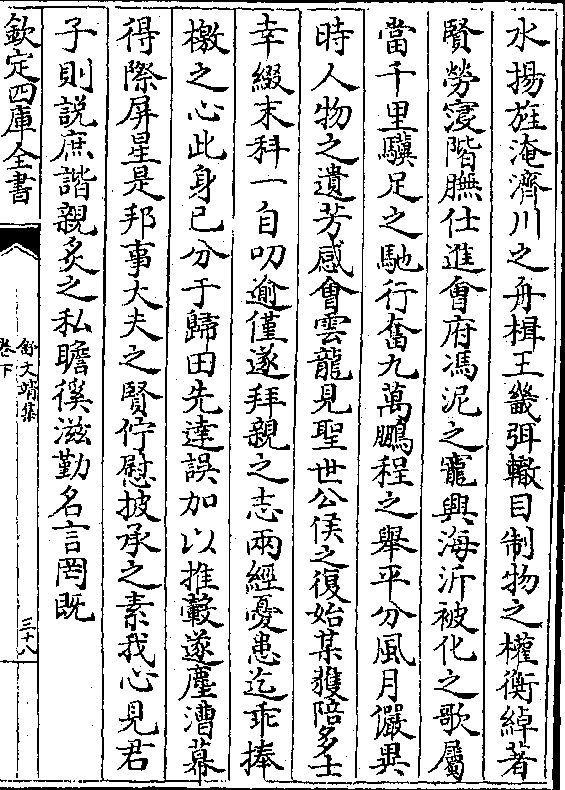 水揚旌淹濟川之舟楫王畿弭轍目制物之權衡綽著
賢勞寖階膴仕進會府馮泥之寵興海沂被化之歌屬
當千里驥足之馳行奮九萬鵬程之舉平分風月儼異
時人物之遺芳感會雲龍見聖世公侯之復始某獲陪多士
幸綴末科一自叨逾僅遂拜親之志兩經憂患迄乖捧
檄之心此身已分于歸田先達誤加以推轂遂塵漕幕
得際屏星是邦事大夫之賢佇慰披承之素我心見君
子則說庶諧親炙之私瞻徯滋勤名言罔既
欽定四庫全書
舒文靖集
卷下
三十八